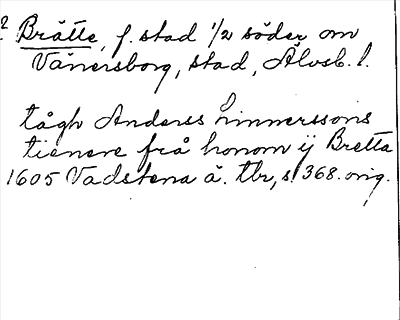 Brätte, f. stad 1/2 söder om
Vänersborg, stad, Älvsb. l.
tågh Anderss Linnerssons
tienere frå honom ij Bretta
1605 Vadstena ä. tbr, s. 368. orig.